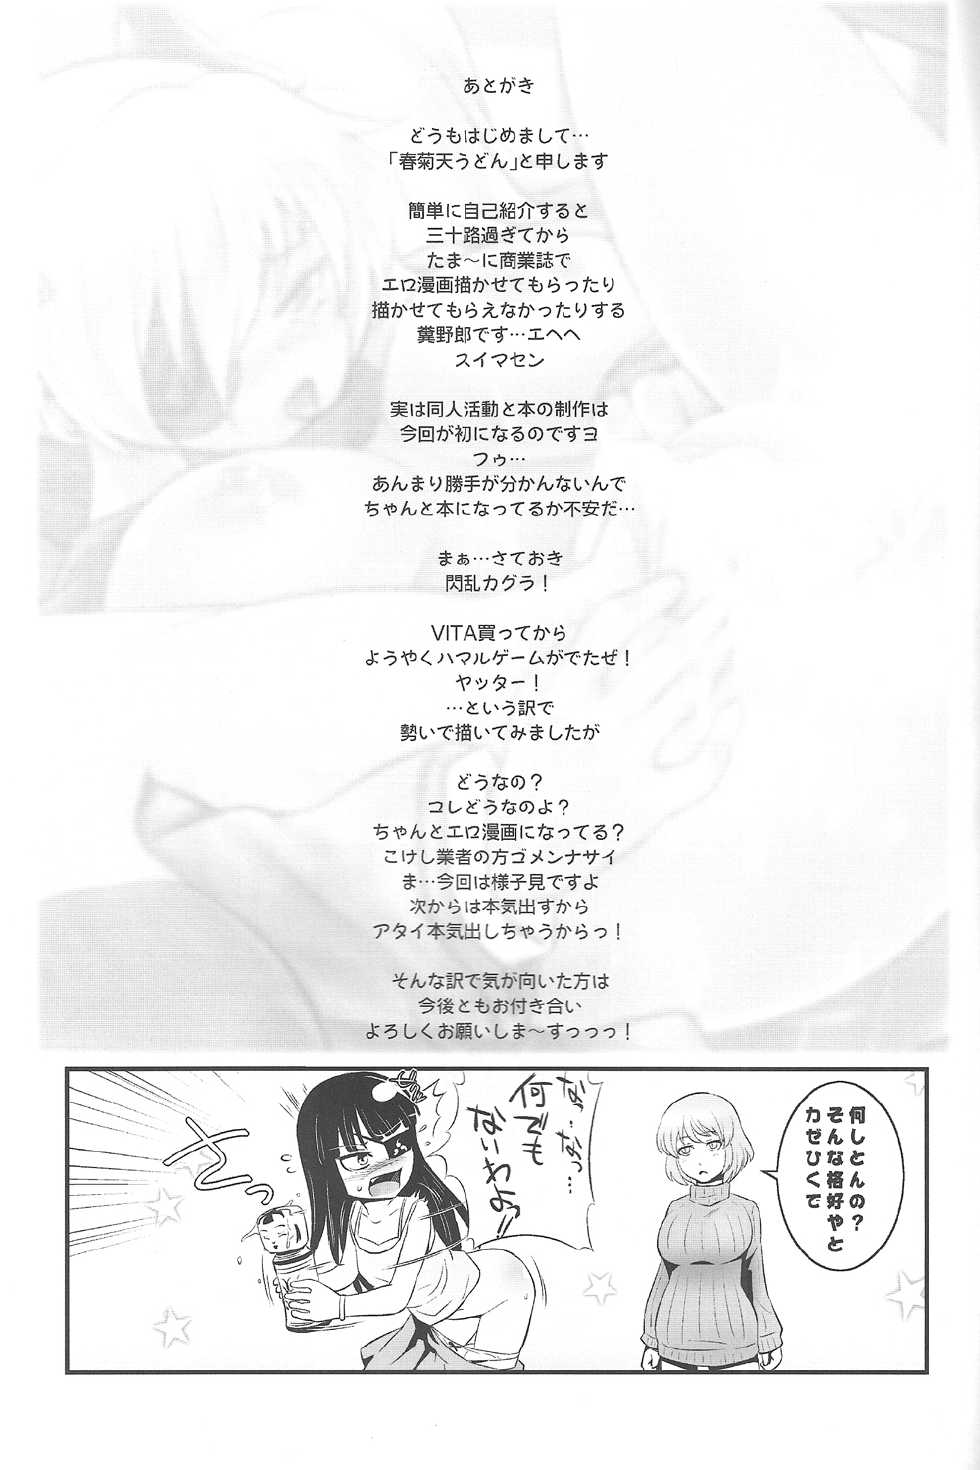 あとがき
どうもはじめまして…
「春菊天うどん」と申します
簡単に自己紹介すると
三十路過ぎてから
たま～に商業誌で
エロ漫画描かせてもらったり
描かせてもらえなかったりする
糞野郎です…エヘヘ
スイマセン
実は同人活動と本の制作は
今回が初になるのですヨ
フゥ…
あんまり勝手が分かんないんで
ちゃんと本になってるか不安だ…
まぁ…さておき
閃乱カグラ！
VITA買ってから
ようやくハマルゲームがでたぜ！
ヤッター！
…という訳で
勢いで描いてみましたが
どうなの？
コレどうなのよ？
ちゃんとエロ漫画になってる？
こけし業者の方ゴメンナサイ
ま…今回は様子見ですよ
次からは本気出すから
アタイ本気出しちゃうからっ！
そんな訳で気が向いた方は
今後ともお付き合い
よろしくお願いしま～すっっっ！
何しとんの？
そんな格好やと
カゼひくで
だ…だっ…
何でも
ないわよっ!!
メラッ